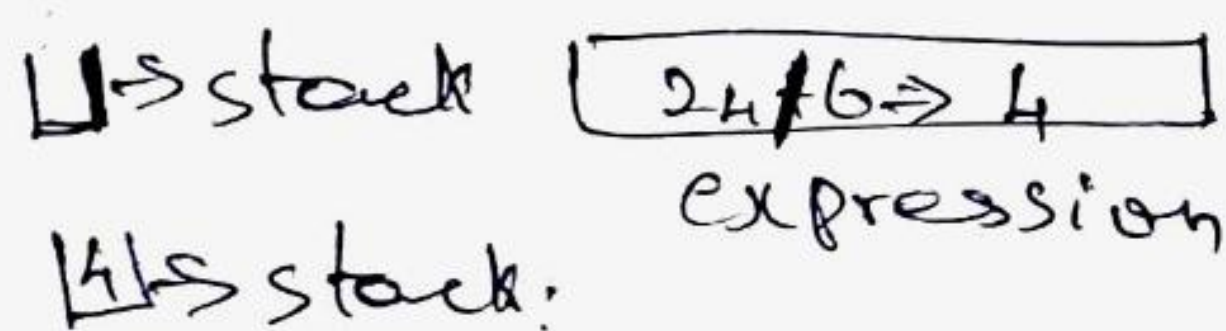 → stack 24/6 ⇒ 4
expression
4 → stack.